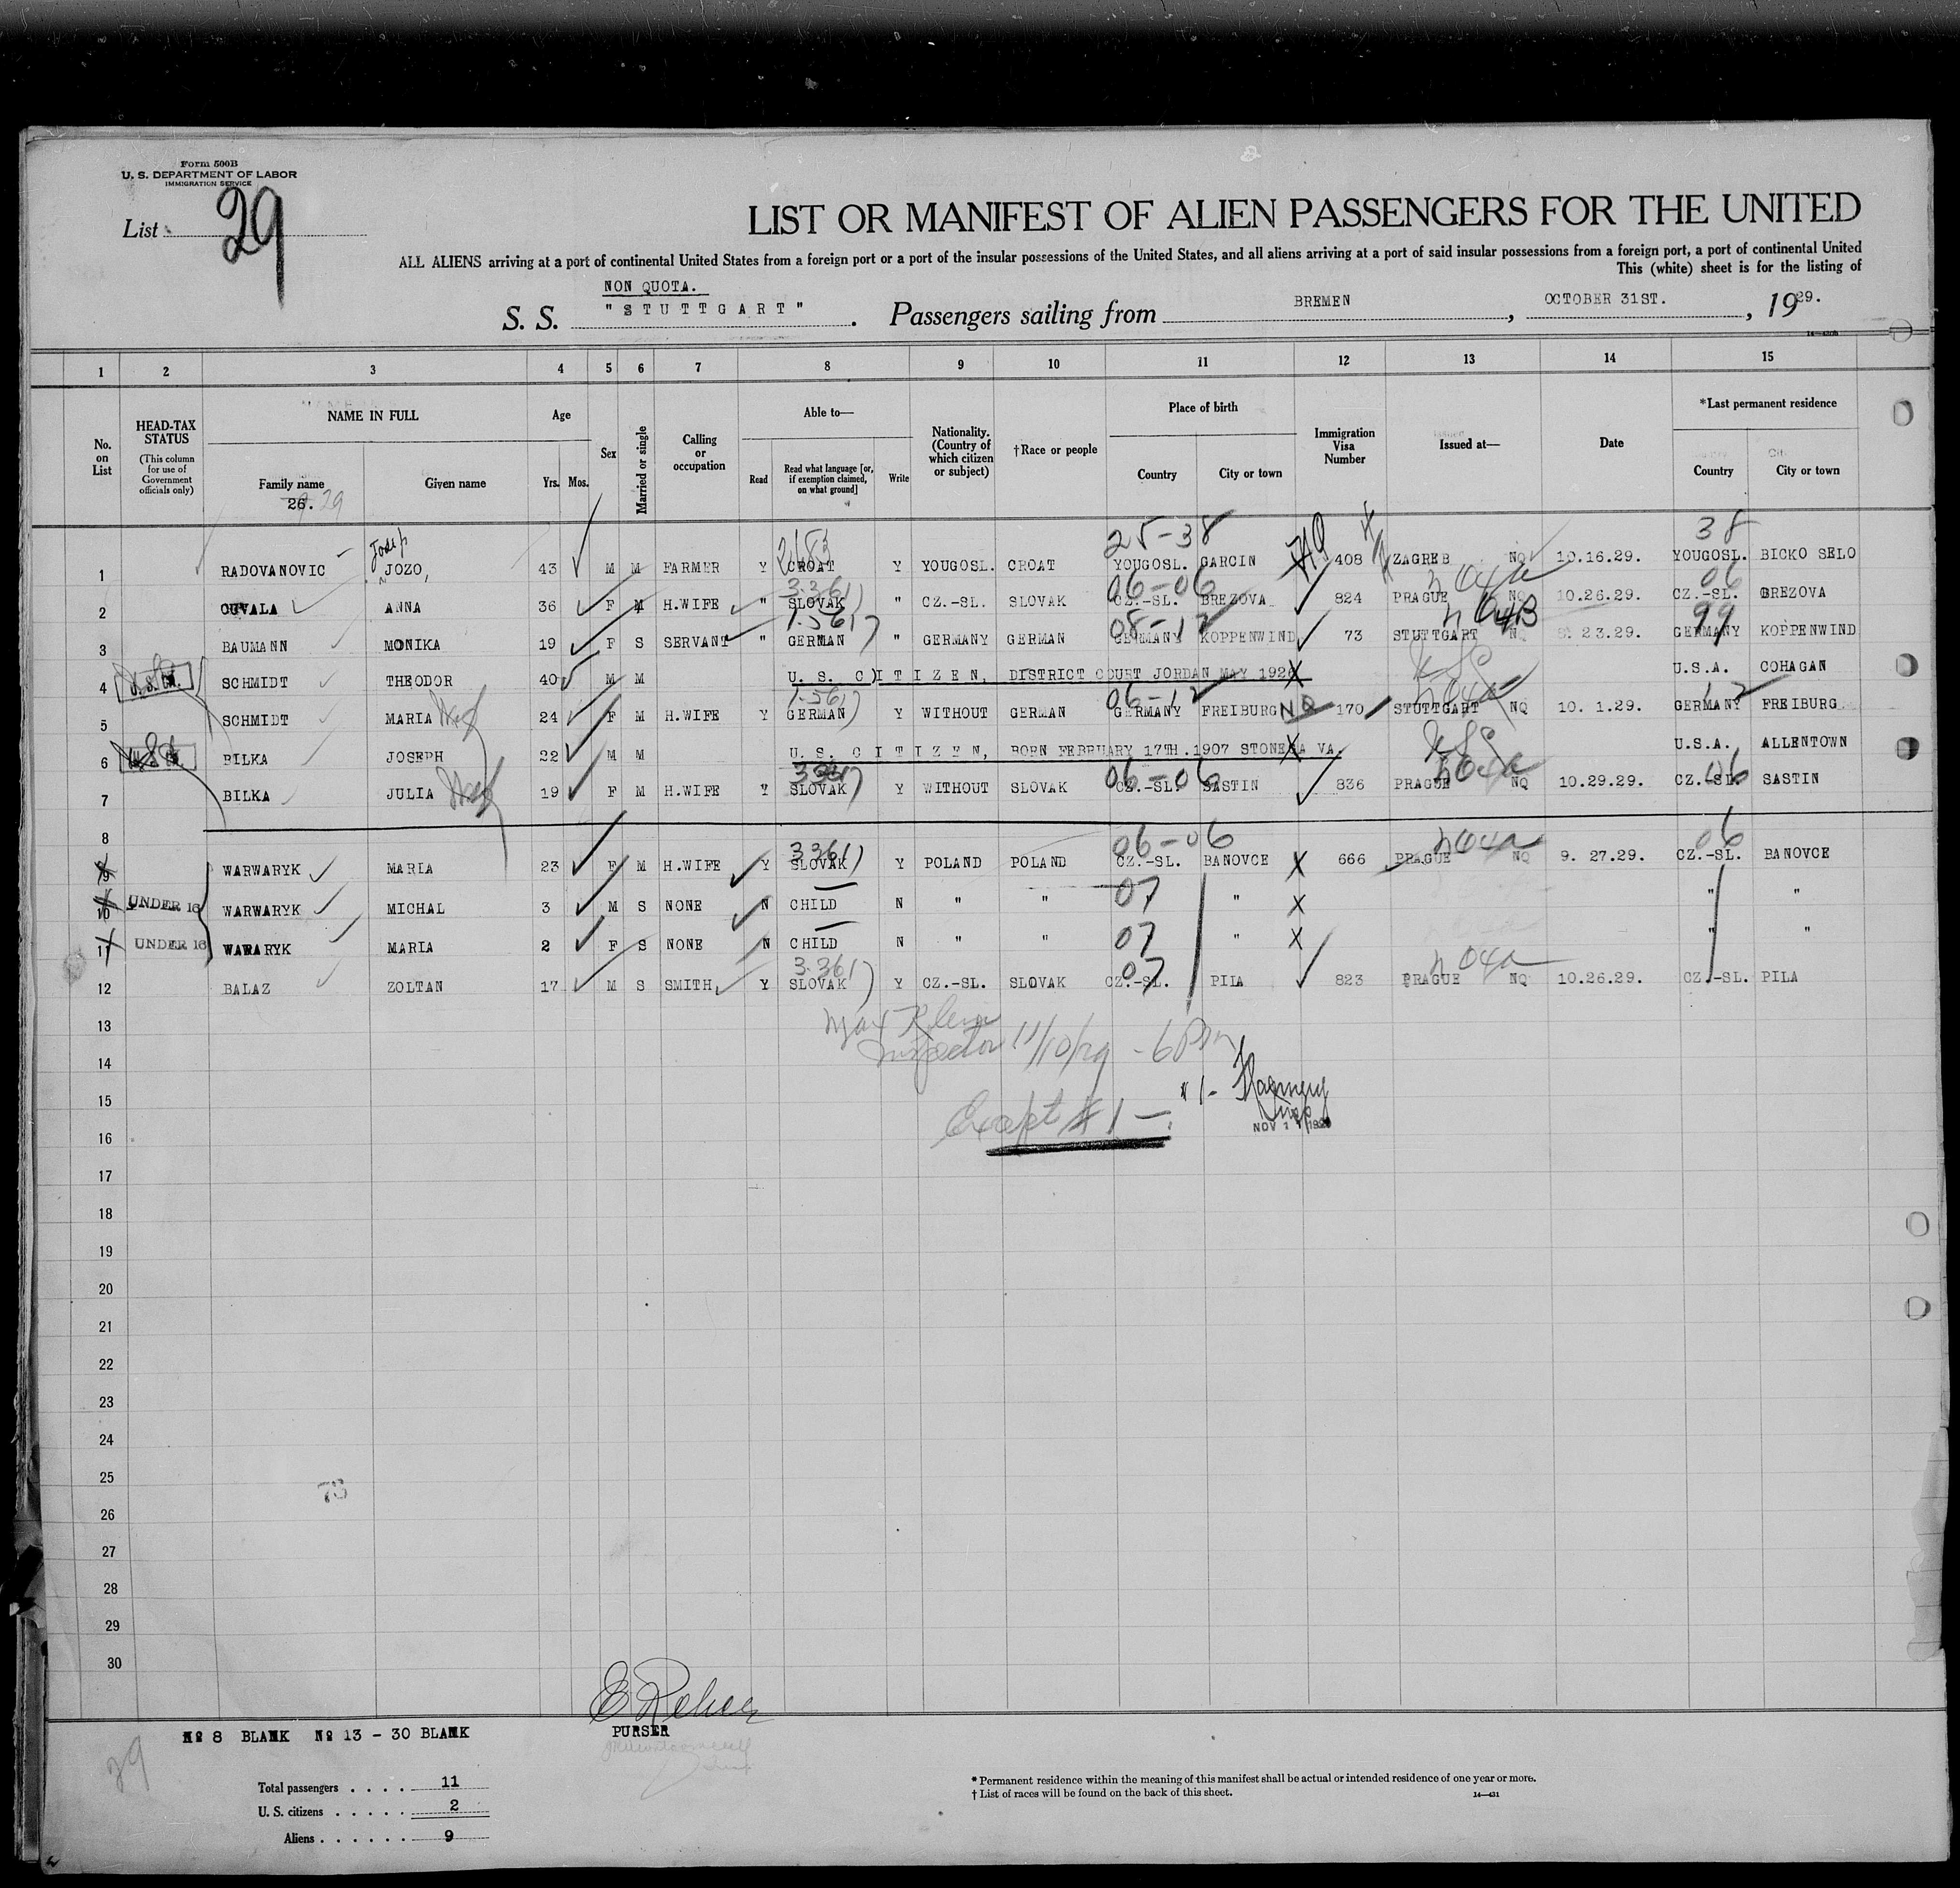 Form 500B
U. S. DEPARTMENT OF LABOR
IMMIGRATION SERVICE
List 29
LIST OR MANIFEST OF ALIEN PASSENGERS FOR THE UNITED
ALL ALIENS arriving at a port of continental United States from a foreign port or a port of the insular possessions of the United States, and all aliens arriving at a port of said insular possessions from a foreign port, a port of continental United
This (white) sheet is for the listing of
NON QUOTA.
S. S. "STUTTGART". Passengers sailing from BREMEN, OCTOBER 31ST., 1929.
1 2 3 4 5 6 7 8 9 10 11 12 13 14 15
No. on List
HEAD-TAX STATUS (This column for use of Government officials only)
NAME IN FULL
Family name Given name
26. 29
Age Yrs. Mos.
Sex
Married or single
Calling or occupation
Able to— Read Read what language [or, if exemption claimed, on what ground] Write
Nationality. (Country of which citizen or subject)
†Race or people
Place of birth Country City or town
Immigration Visa Number
Issued at—
Date
*Last permanent residence Country City or town
Josip 2683 25-38 38
1 RADOVANOVIC JOZO, 43 M M FARMER Y CROAT Y YOUGOSL. CROAT YOUGOSL. GARCIN 408 ZAGREB NQ 10.16.29. YOUGOSL. BICKO SELO
3361 06-06 n04a 06
2 CUVALA ANNA 36 F M H.WIFE " SLOVAK " CZ.-SL. SLOVAK CZ.-SL. BREZOVA 824 PRAGUE NQ 10.26.29. CZ.-SL. BREZOVA
1-561 08-12 n04B 99
3 BAUMANN MONIKA 19 F S SERVANT " GERMAN " GERMANY GERMAN GERMANY KOPPENWIND 73 STUTTGART NQ 23.29. GERMANY KOPPENWIND
4 SCHMIDT THEODOR 40 M M U. S. CITIZEN, DISTRICT COURT JORDAN MAY 1926 U.S.A. COHAGAN
1-561 06-12 n04a 12
5 SCHMIDT MARIA 24 F M H.WIFE Y GERMAN Y WITHOUT GERMAN GERMANY FREIBURG NQ 170 STUTTGART NQ 10. 1.29. GERMANY FREIBURG
6 BILKA JOSEPH 22 M M U. S. CITIZEN, BORN FEBRUARY 17TH.1907 STONEGA VA. U.S.A. ALLENTOWN
3361 06-06 n04a 06
7 BILKA JULIA 19 F M H.WIFE Y SLOVAK Y WITHOUT SLOVAK CZ.-SL. SASTIN 836 PRAGUE NQ 10.29.29. CZ.-SL. SASTIN
8
3361 06-06 n04a 06
9 WARWARYK MARIA 23 F M H.WIFE Y SLOVAK Y POLAND POLAND CZ.-SL. BANOVCE 666 PRAGUE NQ 9. 27.29. CZ.-SL. BANOVCE
10 UNDER 16 WARWARYK MICHAL 3 M S NONE N CHILD N " " 07 " " "
11 UNDER 16 WARARYK MARIA 2 F S NONE N CHILD N " " 07 " " "
3.361 07 n04a
12 BALAZ ZOLTAN 17 M S SMITH, Y SLOVAK Y CZ.-SL. SLOVAK CZ.-SL. PILA 823 PRAGUE NQ 10.26.29. CZ.-SL. PILA
13
Inspector 11/10/29 - 6 Pm
14
15
Except #1 -
16
NOV 1 1 1929
17
18
19
20
21
22
23
24
25
75
26
27
28
29
30
PURSER
№ 8 BLANK № 13 - 30 BLANK
29
Total passengers . . . . 11
U. S. citizens . . . . . 2
Aliens . . . . . . 9
* Permanent residence within the meaning of this manifest shall be actual or intended residence of one year or more.
† List of races will be found on the back of this sheet.
14—431